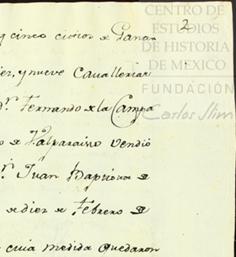 CENTRO DE
ESTUDIOS
DE HISTORIA
DE MEXICO
FUNDACIÓN
Carlos Slim
2
y cinco citios de Ganao
diez, y nueve Cavallerias
Dn. Fernando de la Campa
de Valparaiso vendió
Dn. Juan
de diez de Febrero de
cuia medida quedaron